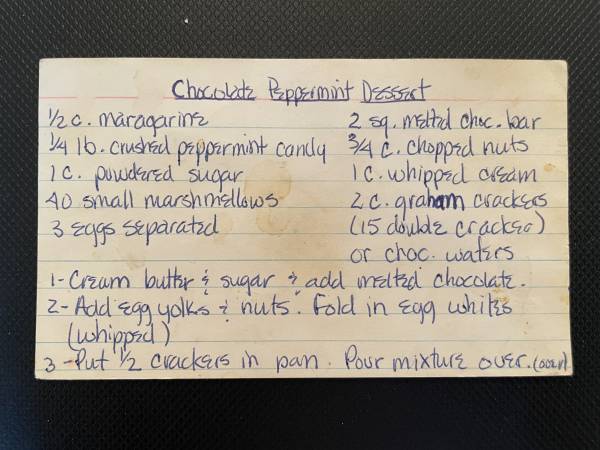 Chocolate Peppermint Dessert
1/2 c. maragarine
1/4 lb. crushed peppermint candy
1 c. powdered sugar
40 small marshmellows
3 eggs separated
2 sq. melted choc. bar
3/4 c. chopped nuts
1 c. whipped cream
2 c. graham crackers
(15 double cracker)
or choc. waters
1- Cream butter & sugar & add melted chocolate.
2- Add egg yolks & nuts. Fold in egg whites
(whipped)
3 -Put 1/2 crackers in pan. Pour mixture over. (over)